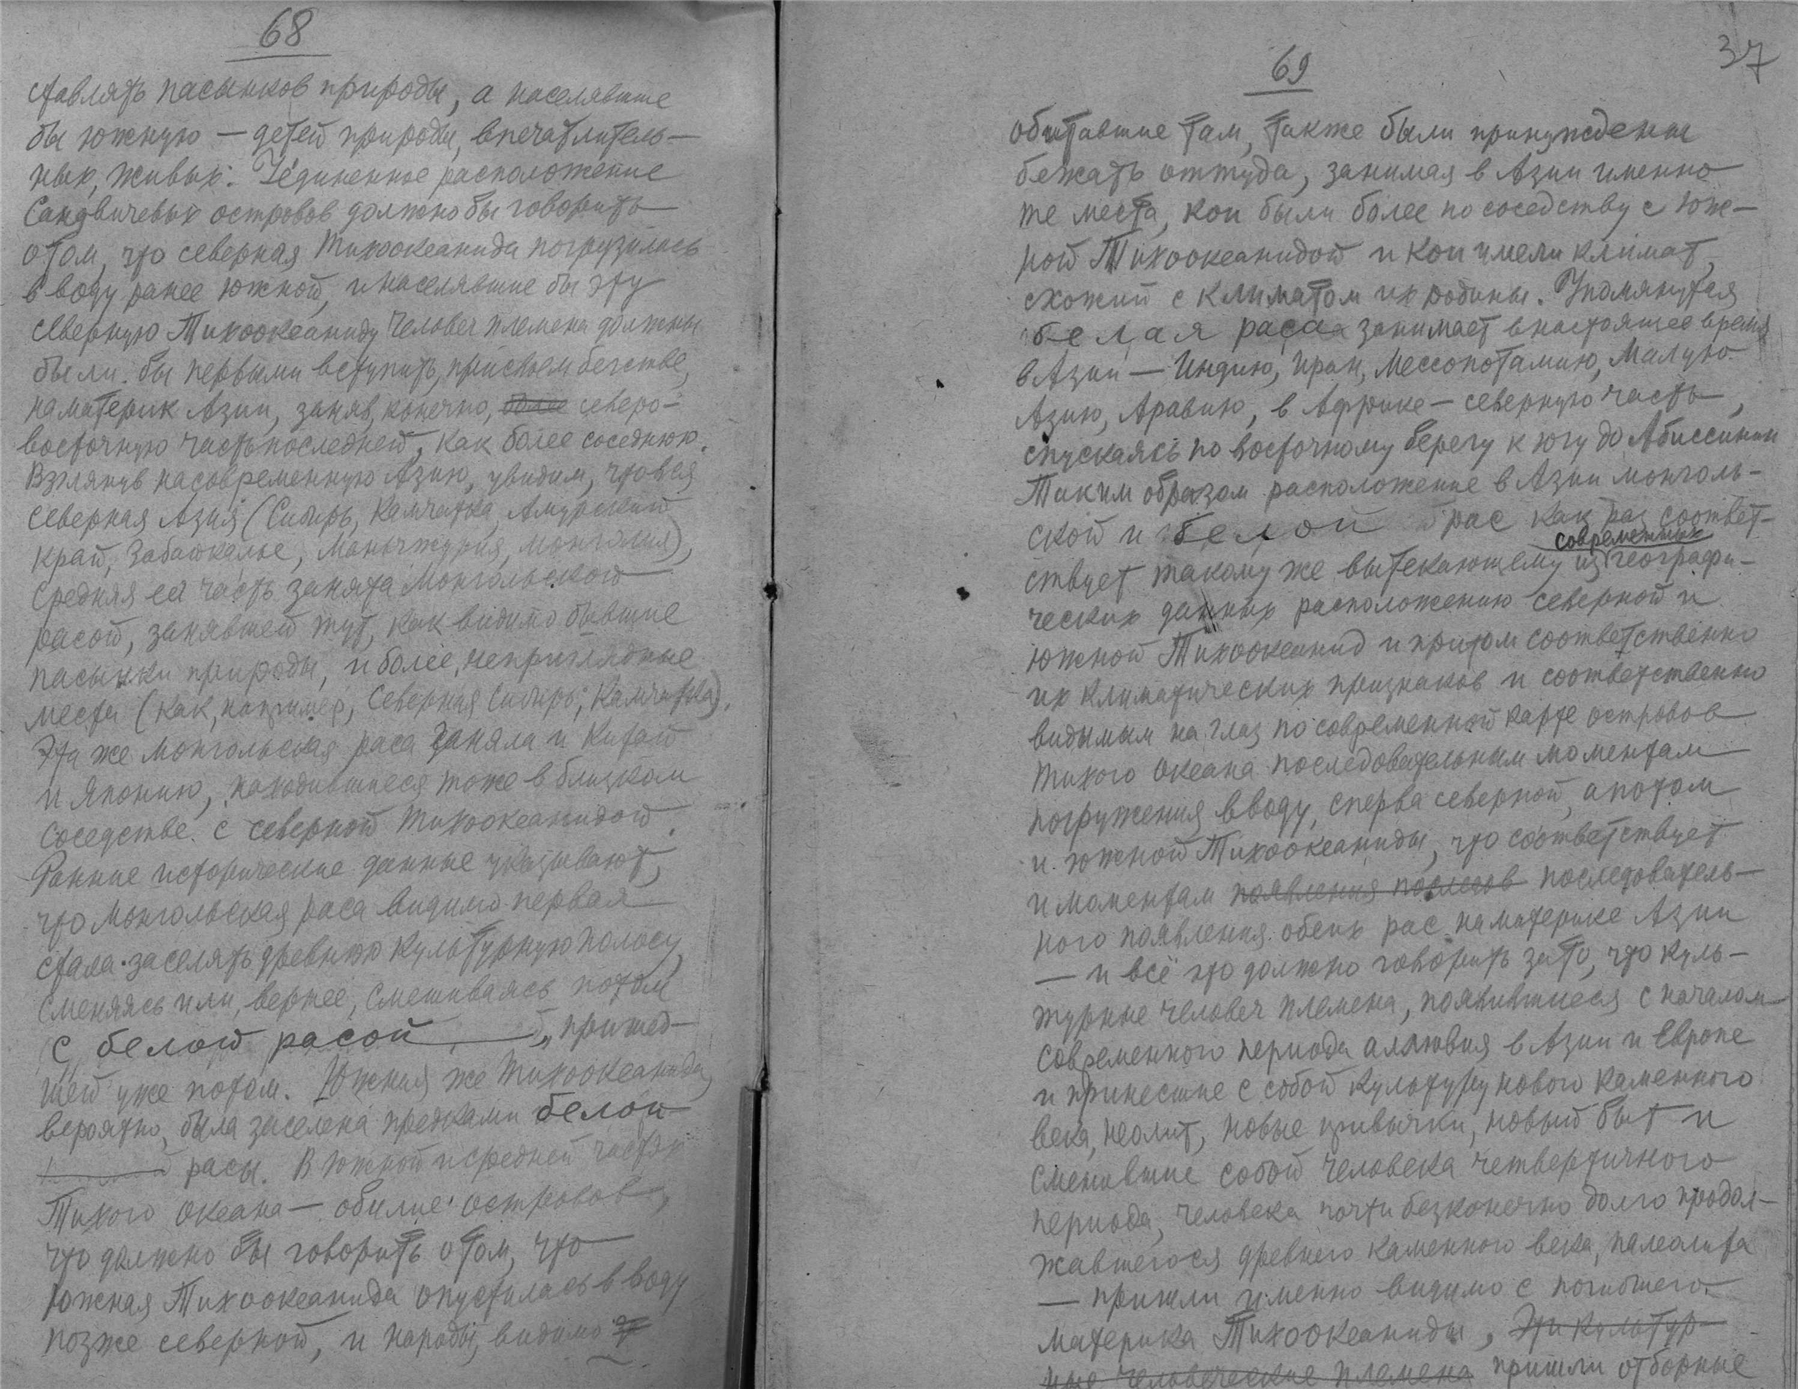 68
ставлять пасынков природы, а населявшие
бы южную — детей природы, впечатлитель-
ных, живых. Уединенное расположение
Сандвичевых островов должно бы говорить
о том, что северная Тихоокеанида погрузилась
в воду ранее южной, и населявшие бы эту
северную Тихоокеаниду человеч племена должны
были бы первыми вступить, при своем бегстве,
на материк Азии, заняв, конечно, более северо-
восточную часть последней, как более соседнюю.
Взглянув на современную Азию, увидим, что вся
северная Азия (Сибирь, Камчатка, Амурский
край, Забайкалье, Маньчжурия, Монголия),
средняя её часть занята Монгольской
расой, занявшей тут, как видимо бывшие
пасынки природы, и более неприглядные
места (как, например, Северная Сибирь, Камчатка).
Эта же монгольская раса заняла и Китай
и Японию, находившиеся тоже в близком
соседстве с северной Тихоокеанидой.
Ранние исторические данные указывают,
что Монгольская раса видимо первая
стала заселять древнюю культурную полосу,
сменяясь или, вернее, смешиваясь потом
с белой расой, пришед-
шей уже потом. Южная же Тихоокеанида,
вероятно, была заселена предками белой
расы. В южной и средней частях
Тихого океана — обилие островов,
что должно бы говорить о том, что
Южная Тихоокеанида опустилась в воду
позже северной, и народы, видимо
69
37
обитавшие там, также были принуждены
бежать оттуда, занимая в Азии именно
те места, кои были более по соседству с Юж-
ной Тихоокеанидой и кои имели климат,
схожий с климатом их родины. Упомянутая
белая раса занимает в настоящее время
в Азии — Индию, Иран, Мессопотамию, Малую
Азию, Аравию, в Африке — северную часть,
спускаясь по восточному берегу к югу до Абиссинии
Таким образом расположение в Азии монголь-
ской и белой рас как раз соответ-
ствует такому же вытекающему из современных географи-
ческих данных расположению северной и
южной Тихоокеанид и притом соответственно
их климатических признаков и соответственно
видимым на глаз по современной карте островов
Тихого Океана последовательным моментам
погружения в воду, сперва северной, а потом
и южной Тихоокеаниды, что соответствует
и моментам появления последов последователь-
ного появления обеих рас на материке Азии
— и всё это должно говорить за то, что куль-
турные человеч племена, появившиеся с началом
современного периода аллювия в Азии и Европе
и принесшие с собой культуру нового каменного
века, неолит, новые привычки, новый быт и
сменившие собой человека четвертичного
периода, человека почти безконечно долго продол-
жавшегося древнего каменного века, палеолита
— пришли именно видимо с погибшего
материка Тихоокеаниды, Эти культур-
ные человеческие племена пришли отборные